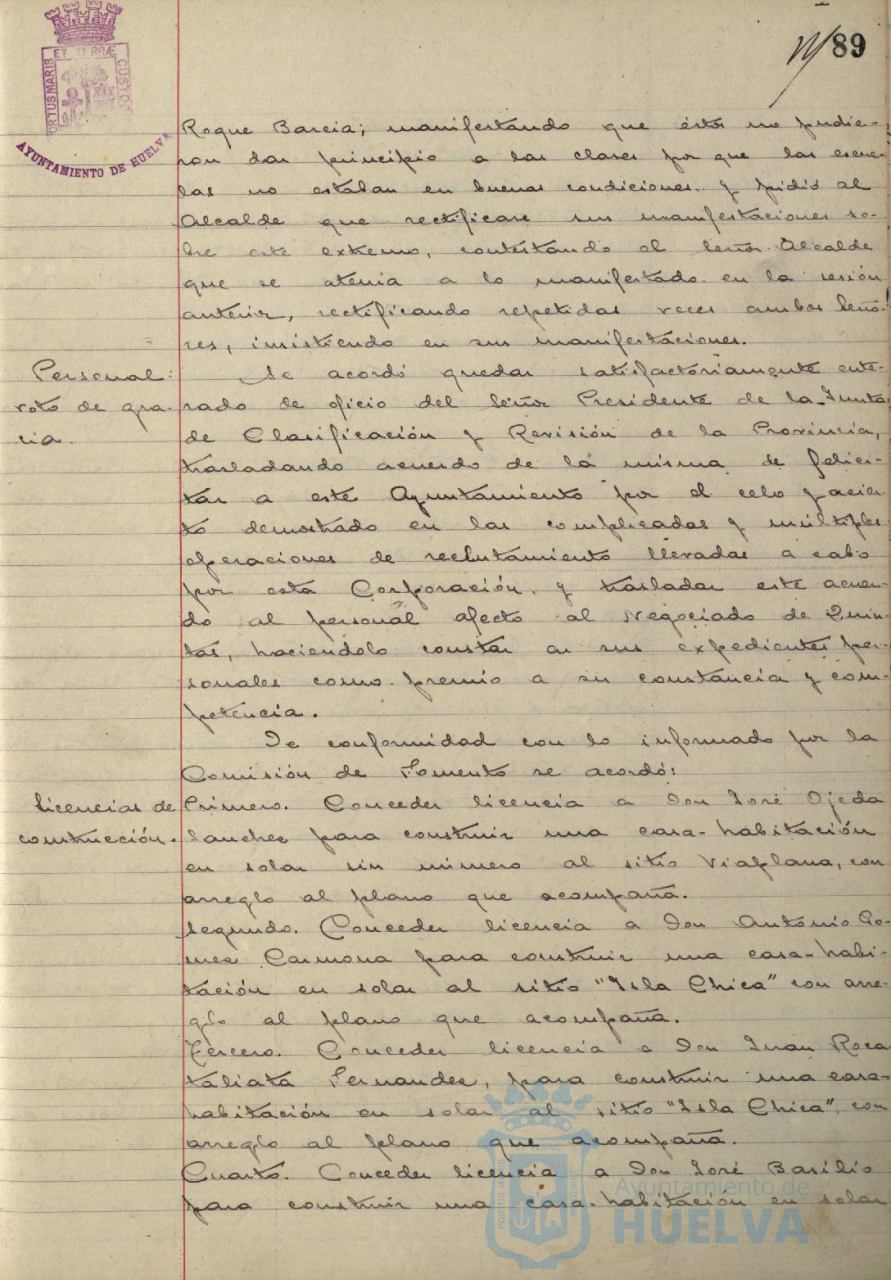 89
PORTUS MARIS ET TERRAE CUSTOD
AYUNTAMIENTO DE HUELVA
Roque Barcia; manifestando que éstos no pudie-
ron dar principio a las clases por que las escue-
las no estaban en buenas condiciones. y pidió al
Alcalde que rectificase sus manifestaciones so-
bre este extremo, contestando el Señor Alcalde
que se atenia a lo manifestado en la sesión
anterior, rectificando repetidas veces ambos Seño-
res, insistiendo en sus manifestaciones.
Personal:
voto de gra-
cia.
Se acordó quedar satisfactoriamente ente-
rado de oficio del Señor Presidente de la Junta
de Clasificación y Revisión de la Provincia,
trasladando acuerdo de la misma de felici-
tar a este Ayuntamiento por el celo y acier-
to demostrado en las complicadas y múltiples
operaciones de reclutamiento llevadas a cabo
por esta Corporación, y trasladar este acuer-
do al personal afecto al Negociado de Quin-
tas, haciendolo constar en sus expedientes per-
sonales como premio a su constancia y com-
petencia.
De conformidad con lo informado por la
Comisión de Fomento se acordó:
Licencias de
construcción.
Primero. Conceder licencia a Don José Ojeda
Sanchez para construir una casa-habitación
en solar sin número al sitio Viaplana, con
arreglo al plano que acompaña.
Segundo. Conceder licencia a Don Antonio Go-
mez Carmona para construir una casa-habi-
tación en solar al sitio "Isla Chica" con arre-
glo al plano que acompaña.
Tercero. Conceder licencia a Don Juan Roca
taliata Fernandez, para construir una casa-
habitación en solar al sitio "Isla Chica", con
arreglo al plano que acompaña.
Cuarto. Conceder licencia a Don José Basilio
para construir una casa-habitación en solar
Ayuntamiento de
HUELVA